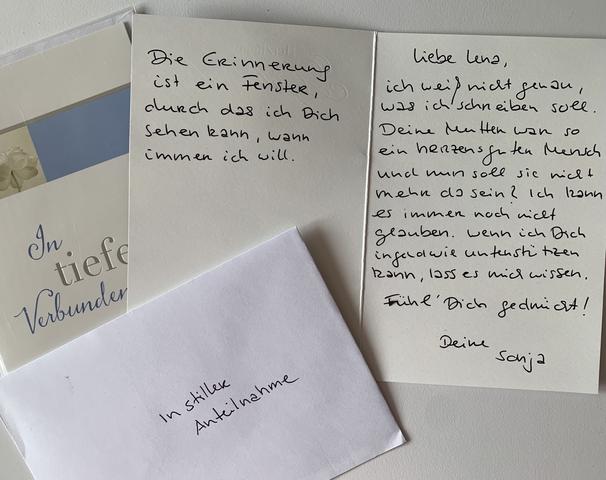 Die Erinnerung
ist ein Fenster,
durch das ich Dich
sehen kann, wann
immen ich will.
Liebe Lena,
ich weiß nicht genau,
was ich schreiben soll.
Deine Mutter war so
ein herzensguten Mensch
und nun soll sie nicht
mehr da sein? Ich kann
es immer noch nicht
glauben. Wenn ich Dich
irgendwie unterstützen
kann, lass es mich wissen.
Fühl' Dich gedrückt!
Deine
Sonja
In
tiefe
Verbunden
In stiller
Anteilnahme